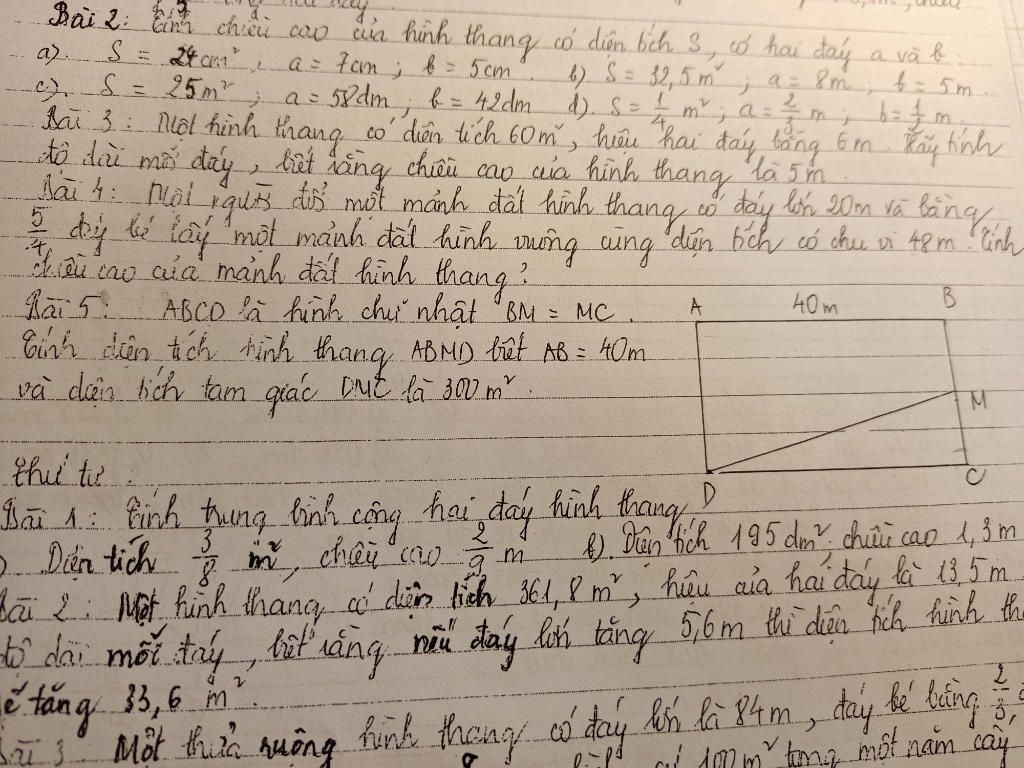 Bài 2: Tính chiều cao của hình thang có diện tích S, có hai đáy a và b.
a). S = 24cm²; a = 7cm; b = 5cm. b) S = 32,5m²; a = 8m; b = 5m.
c). S = 25m²; a = 58dm; b = 42dm d). S = 1/4 m²; a = 2/3 m; b = 1/2 m.
Bài 3: Một hình thang có diện tích 60m², hiệu hai đáy bằng 6m. Hãy tính
độ dài mỗi đáy, biết rằng chiều cao của hình thang là 5m.
Bài 4: Một người đổi một mảnh đất hình thang có đáy lớn 20m và bằng
5/4 đáy bé lấy một mảnh đất hình vuông cùng diện tích có chu vi 48m. Tính
chiều cao của mảnh đất hình thang?
Bài 5: ABCD là hình chữ nhật BM = MC.
Tính diện tích hình thang ABMD biết AB = 40m
và diện tích tam giác DMC là 300m².
A 40m B
M
D C
Thứ tư:
Bài 1: Tính trung bình cộng hai đáy hình thang
) Diện tích 3/8 m², chiều cao 2/9 m b). Diện tích 195dm² chiều cao 1,3m
Bài 2: Một hình thang có diện tích 361,8m², hiệu của hai đáy là 13,5m
độ dài mỗi đáy, biết rằng nếu đáy lớn tăng 5,6m thì diện tích hình
tăng 33,6 m².
Bài 3 Một thửa ruộng hình thang có đáy lớn là 84m, đáy bé bằng 2/3
100m² trong một năm cấy